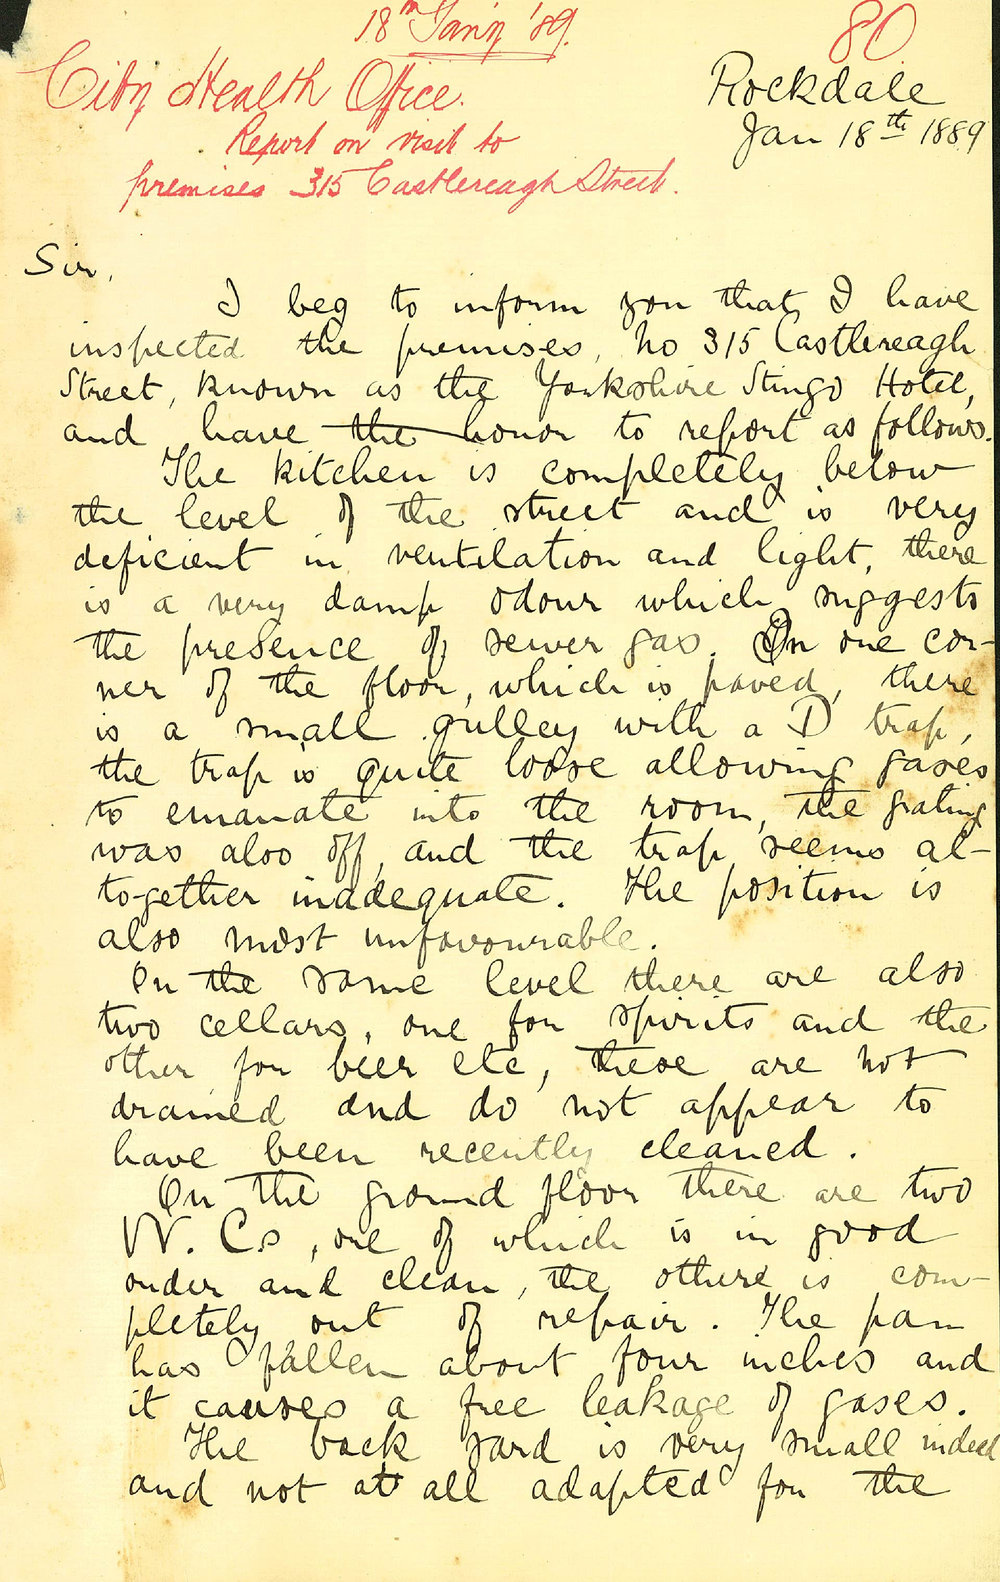 18th Jan'y '89.
80
City Health Office.
Report on visit to
premises 315 Castlereagh Street.
Rockdale
Jan 18th 1889
Sir,
I beg to inform you that I have
inspected the premises, No 315 Castlereagh
Street, known as the Yorkshire Stingo Hotel,
and have the honor to report as follows.
The kitchen is completely below
the level of the street and is very
deficient in ventilation and light, there
is a very damp odour which suggests
the presence of sewer gas. In one cor-
ner of the floor, which is paved, there
is a small gulley with a D trap,
the trap is quite loose allowing gases
to emanate into the room, the grating
was also off, and the trap seems al-
together inadequate. The position is
also most unfavourable.
On the same level there are also
two cellars, one for spirits and the
other for beer etc, these are not
drained and do not appear to
have been recently cleaned.
On the ground floor there are two
W.Cs, one of which is in good
order and clean, the other is com-
pletely out of repair. The pan
has fallen about four inches and
it causes a free leakage of gases.
The back yard is very small indeed
and not at all adapted for the